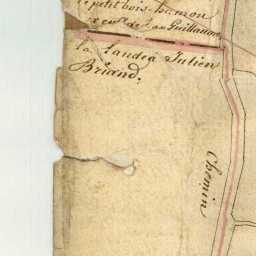 petit bois hamon
Guillaume
la Lande à Julien
Briand.
Chemin